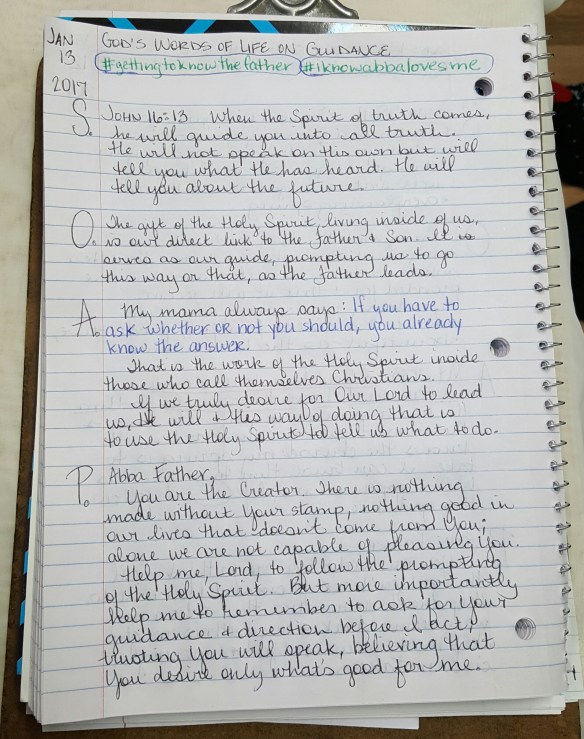 JAN 13 2017
GOD'S WORDS OF LIFE ON GUIDANCE
#gettingtoknowthefather #iknowabbalovesme
S. JOHN 16:13 When the Spirit of truth comes,
he will guide you into all truth.
He will not speak on His own but will
tell you what He has heard. He will
tell you about the future.
O. The gift of the Holy Spirit living inside of us,
is our direct link to the Father & Son. It is
serves as our guide, prompting us to go
this way or that, as the Father leads.
A. My mama always says: If you have to
ask whether OR not you should, you already
know the answer.
That is the work of the Holy Spirit inside
those who call themselves Christians.
If we truly desire for Our Lord to lead
us, He will & His way of doing that is
to use the Holy Spirit to tell us what to do.
P. Abba Father,
You are the Creator. There is nothing
made without Your stamp, nothing good in
our lives that doesn't come from You;
alone we are not capable of pleasing You.
Help me, Lord, to follow the prompting
of the Holy Spirit. But more importantly
help me to remember to ask for Your
guidance & direction before I act,
trusting You will speak, believing that
You desire only what's good for me.